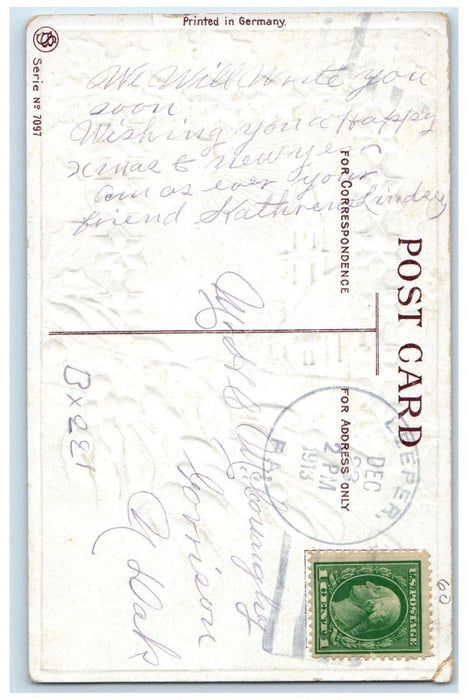 Printed in Germany.
Serie No 7097
We Will Write you
soon
Wishing you a Happy
xmas & new year
am as ever your
friend Kathren Lindsey
POST CARD
FOR CORRESPONDENCE
FOR ADDRESS ONLY
Mrs
Garrison
N Dak
Bx 221
LEEPER,
PA.
DEC
23
2 PM
1913
U.S. POSTAGE
1 CENT 1
60